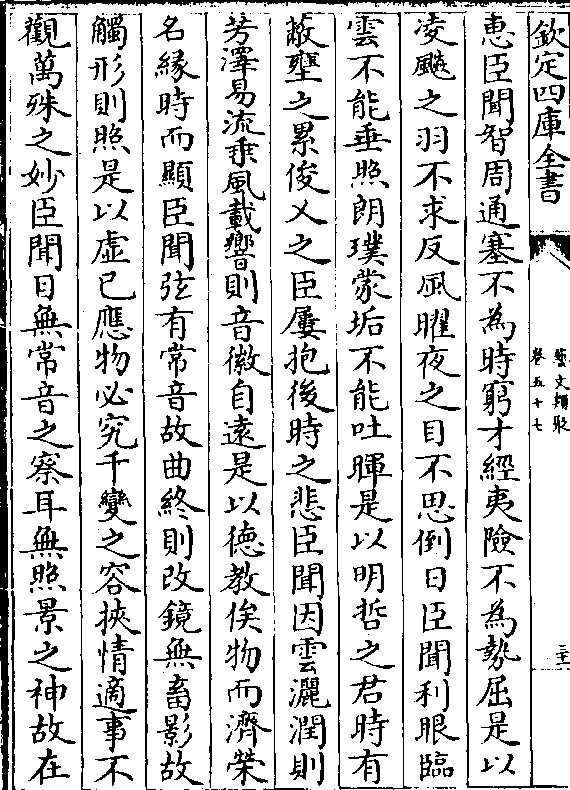 欽定四庫全書
藝文類聚
卷五十七
三十二
惠臣聞智周通塞不為時窮才經夷險不為勢屈是以
凌飈之羽不求反風曜夜之目不思倒日臣聞利眼臨
雲不能垂照朗璞蒙垢不能吐暉是以明哲之君時有
蔽壅之累俊乂之臣屢抱後時之悲臣聞因雲灑潤則
芳澤易流乗風載響則音徽自遠是以德教俟物而濟榮
名緣時而顯臣聞弦有常音故曲終則改鏡無畜影故
觸形則照是以虛已應物必究千變之容挾情適事不
觀萬殊之妙臣聞目無常音之察耳無照景之神故在